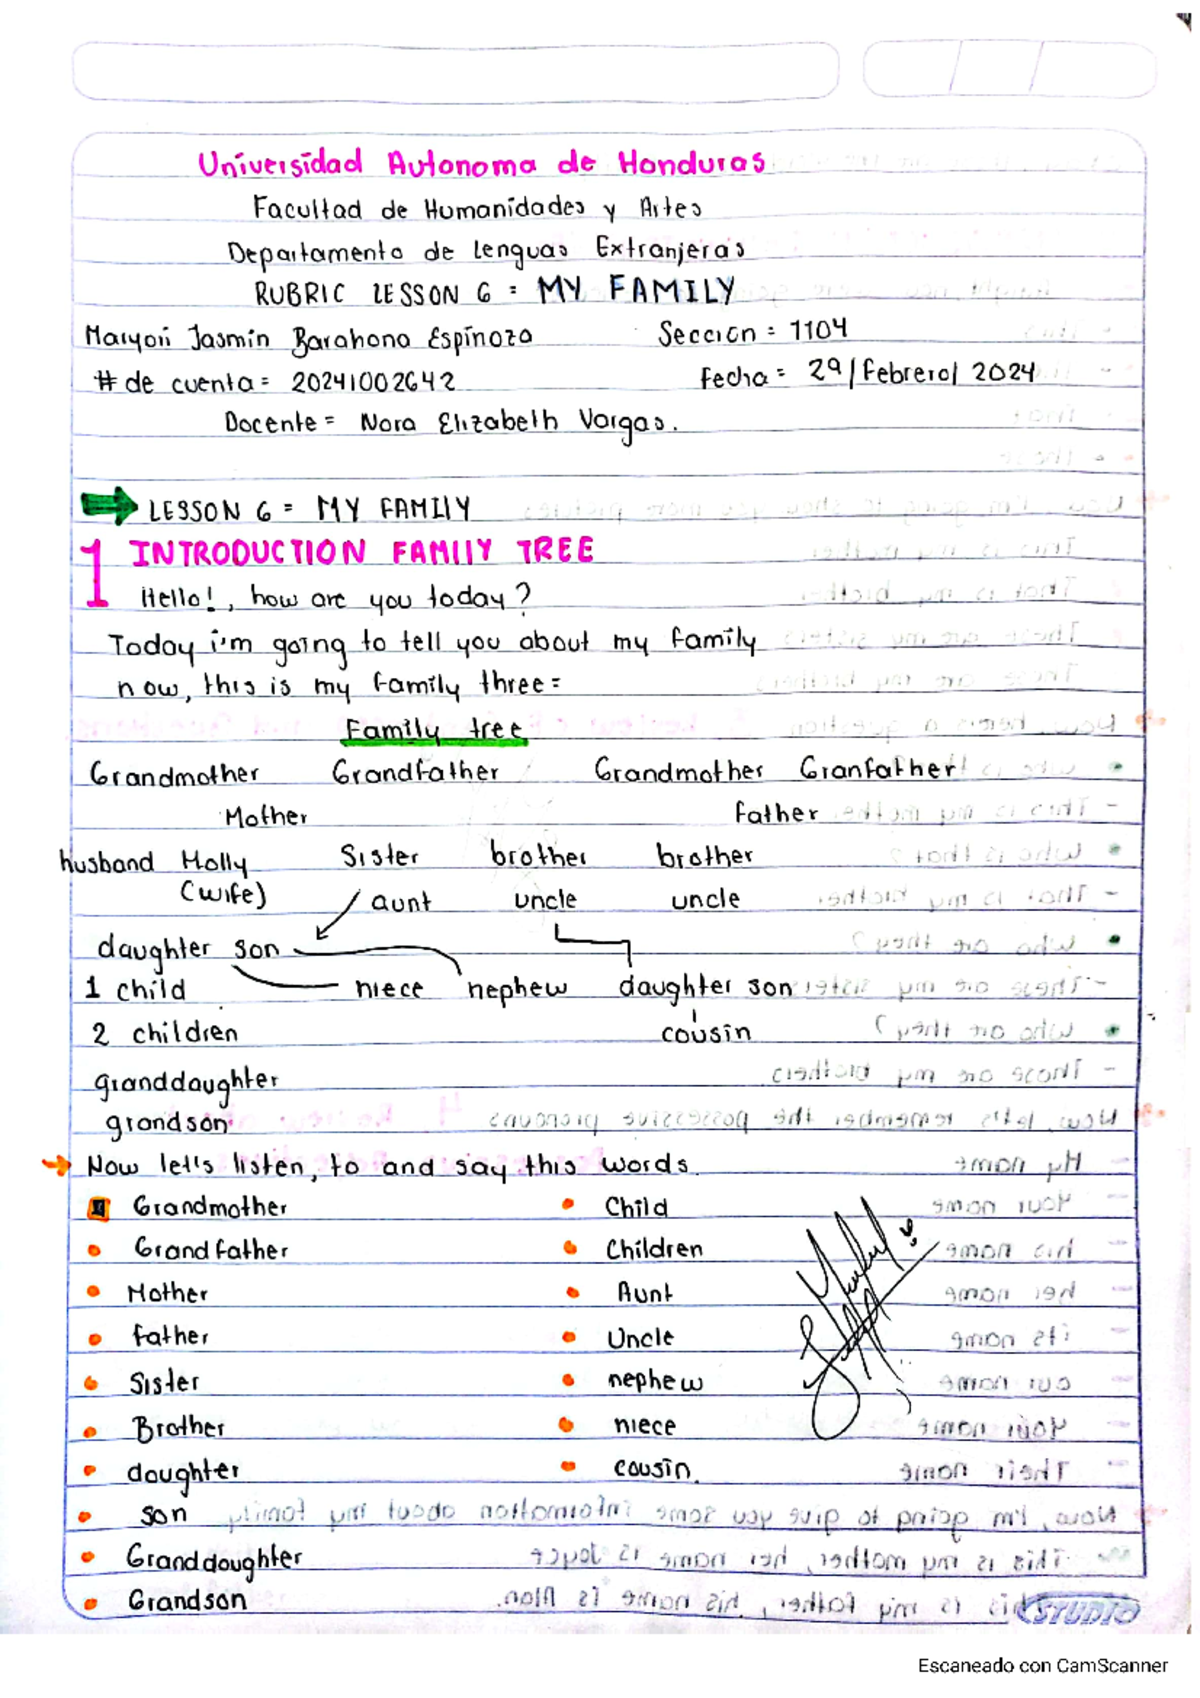 Universidad Autonoma de Honduras
Facultad de Humanidades y Artes
Departamento de Lenguas Extranjeras
RUBRIC LESSON 6 = MY FAMILY
Maryori Jasmin Barahona Espinoza Sección = 1104
# de cuenta = 20241002642 Fecha = 29/Febrero/2024
Docente = Nora Elizabeth Vargas.
LESSON 6 = MY FAMILY
1 INTRODUCTION FAMILY TREE
Hello!, how are you today?
Today i'm going to tell you about my family
now, this is my family three =
Family tree
Grandmother Grandfather Grandmother Granfather
Mother Father
husband Molly Sister brother brother
(wife) aunt uncle uncle
daughter son
1 child niece nephew daughter son
2 children cousin
granddaughter
grandson
Now let's listen, to and say this words.
Grandmother Child
Grandfather Children
Mother Aunt
Father Uncle
Sister nephew
Brother niece
daughter cousin.
son
Granddaughter
Grandson
STUDIO
Escaneado con CamScanner